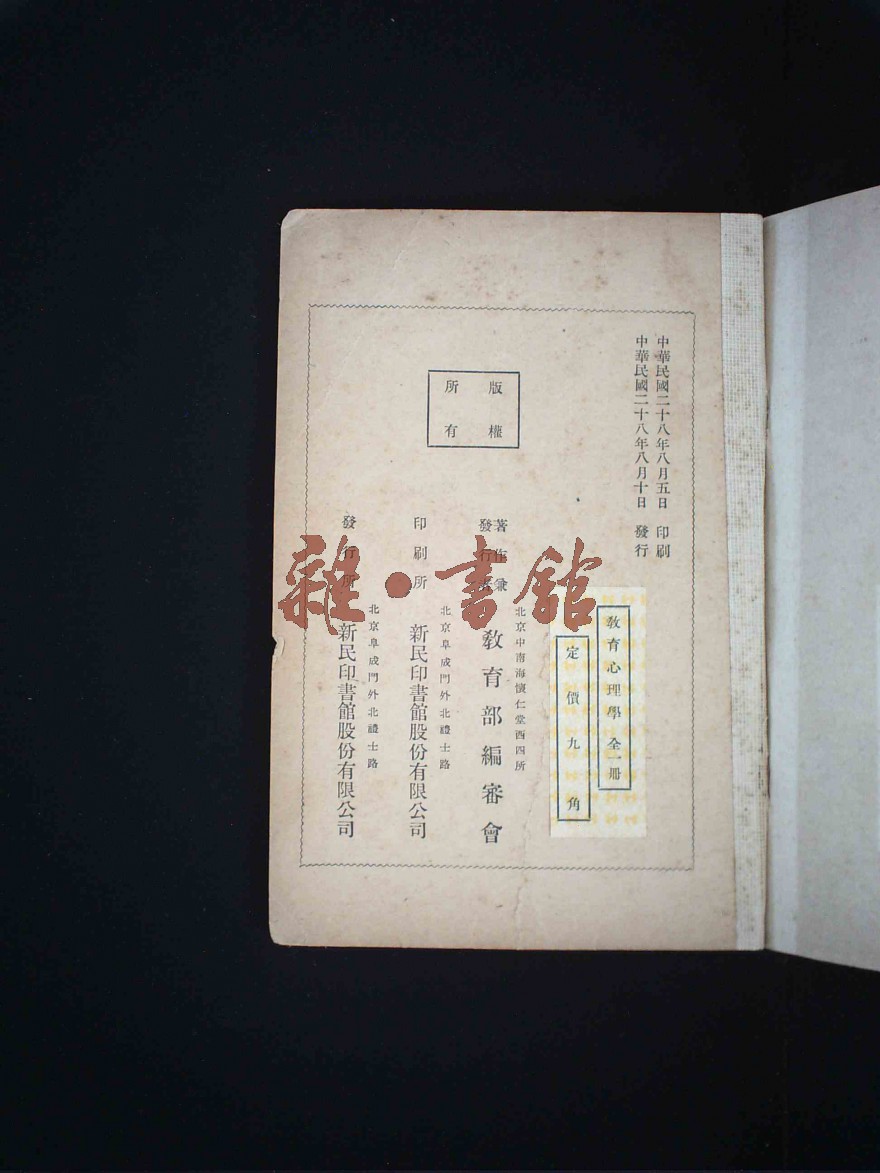 中華民國二十八年八月五日 印刷
中華民國二十八年八月十日 發行
版權
所有
教育心理學 全一册
定價九角
著作兼
發行者
北京中南海懷仁堂西四所
教育部編審會
印刷所
北京阜成門外北禮士路
新民印書館股份有限公司
發行所
北京阜成門外北禮士路
新民印書館股份有限公司
雜·書館